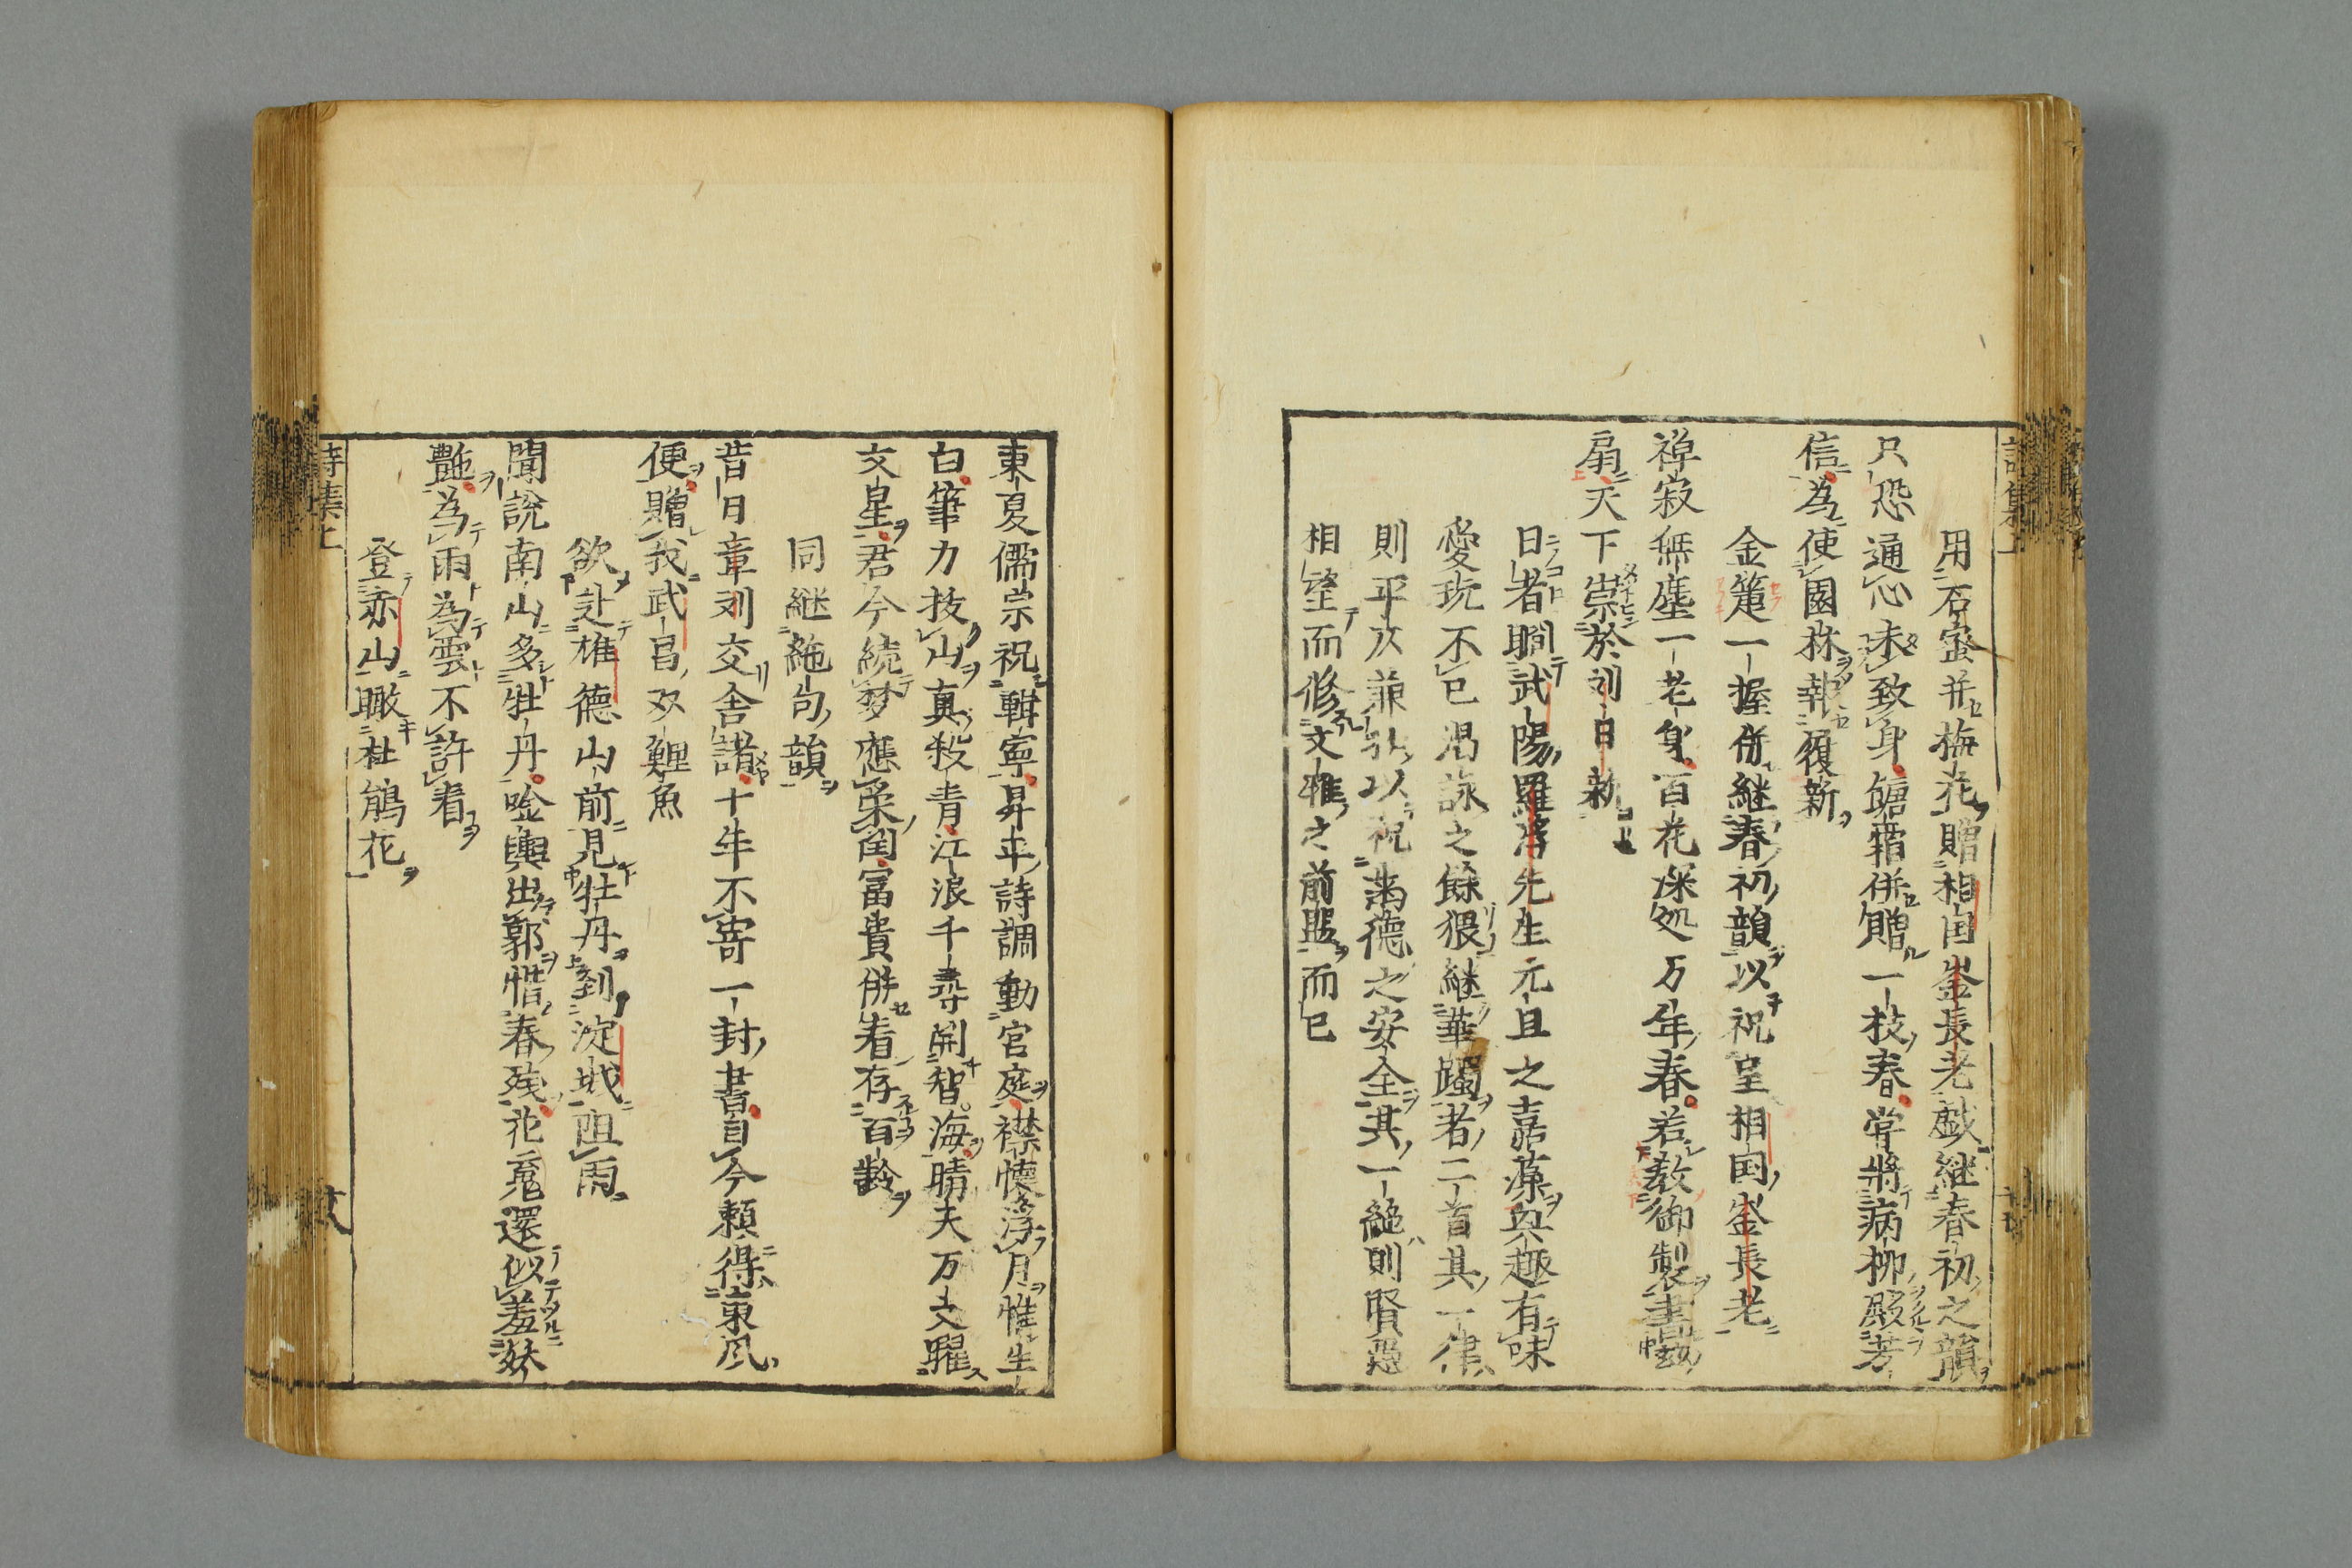 用石蜜并梅花贈相国崟長老戯継春初之韻
只恐通心未致身餹霜併贈一枝春甞將病柳殿芳
信為使園林報履新
金箑一握併継春初韻以祝呈相国崟長老
禅寂無塵一老身百花深処万年春若教御製書
扇天下崇於刘日新
日者聞武陽羅浮先生元旦之嘉藻與趣有味
愛玩不已渇詠之餘猥継華躅者二首其一律
則平仄兼以祝満德之安全其一絶則賢愚
相望而修文雅之前盟而已
東夏儒宗祝輯寧昇平詩調動官庭襟懷浮月惟生
白筆力抜山真殺青江浪千尋開智海晴天万丈曜
文星君今続梦應柔閏富貴併看存百齡
同継絶句韻
昔日章刘交舎諸十年不寄一封書自今頼得東風
便贈我武昌双鯉魚
欲赴雄德山前見牡丹到淀城阻雨
聞說南山多牡丹唫輿出郭惜春残花憲還似羞妖
艶為雨為雲不許看
登赤山瞰杜鵑花
詩集上